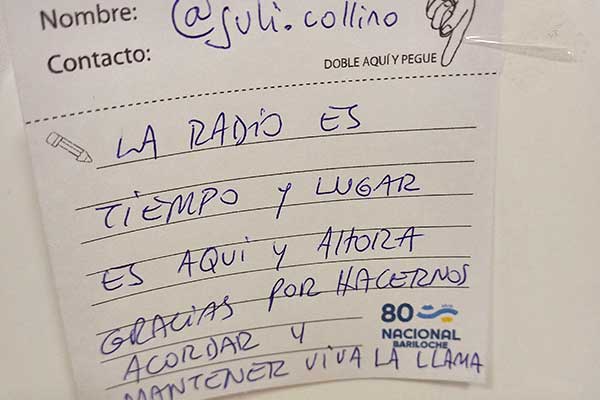 Nombre: @juli.collino
Contacto:
DOBLE AQUÍ Y PEGUE
LA RADIO ES
TIEMPO Y LUGAR
ES AQUI Y AHORA
GRACIAS POR HACERNOS
ACORDAR Y
MANTENER VIVA LA LLAMA
80 años
NACIONAL
BARILOCHE